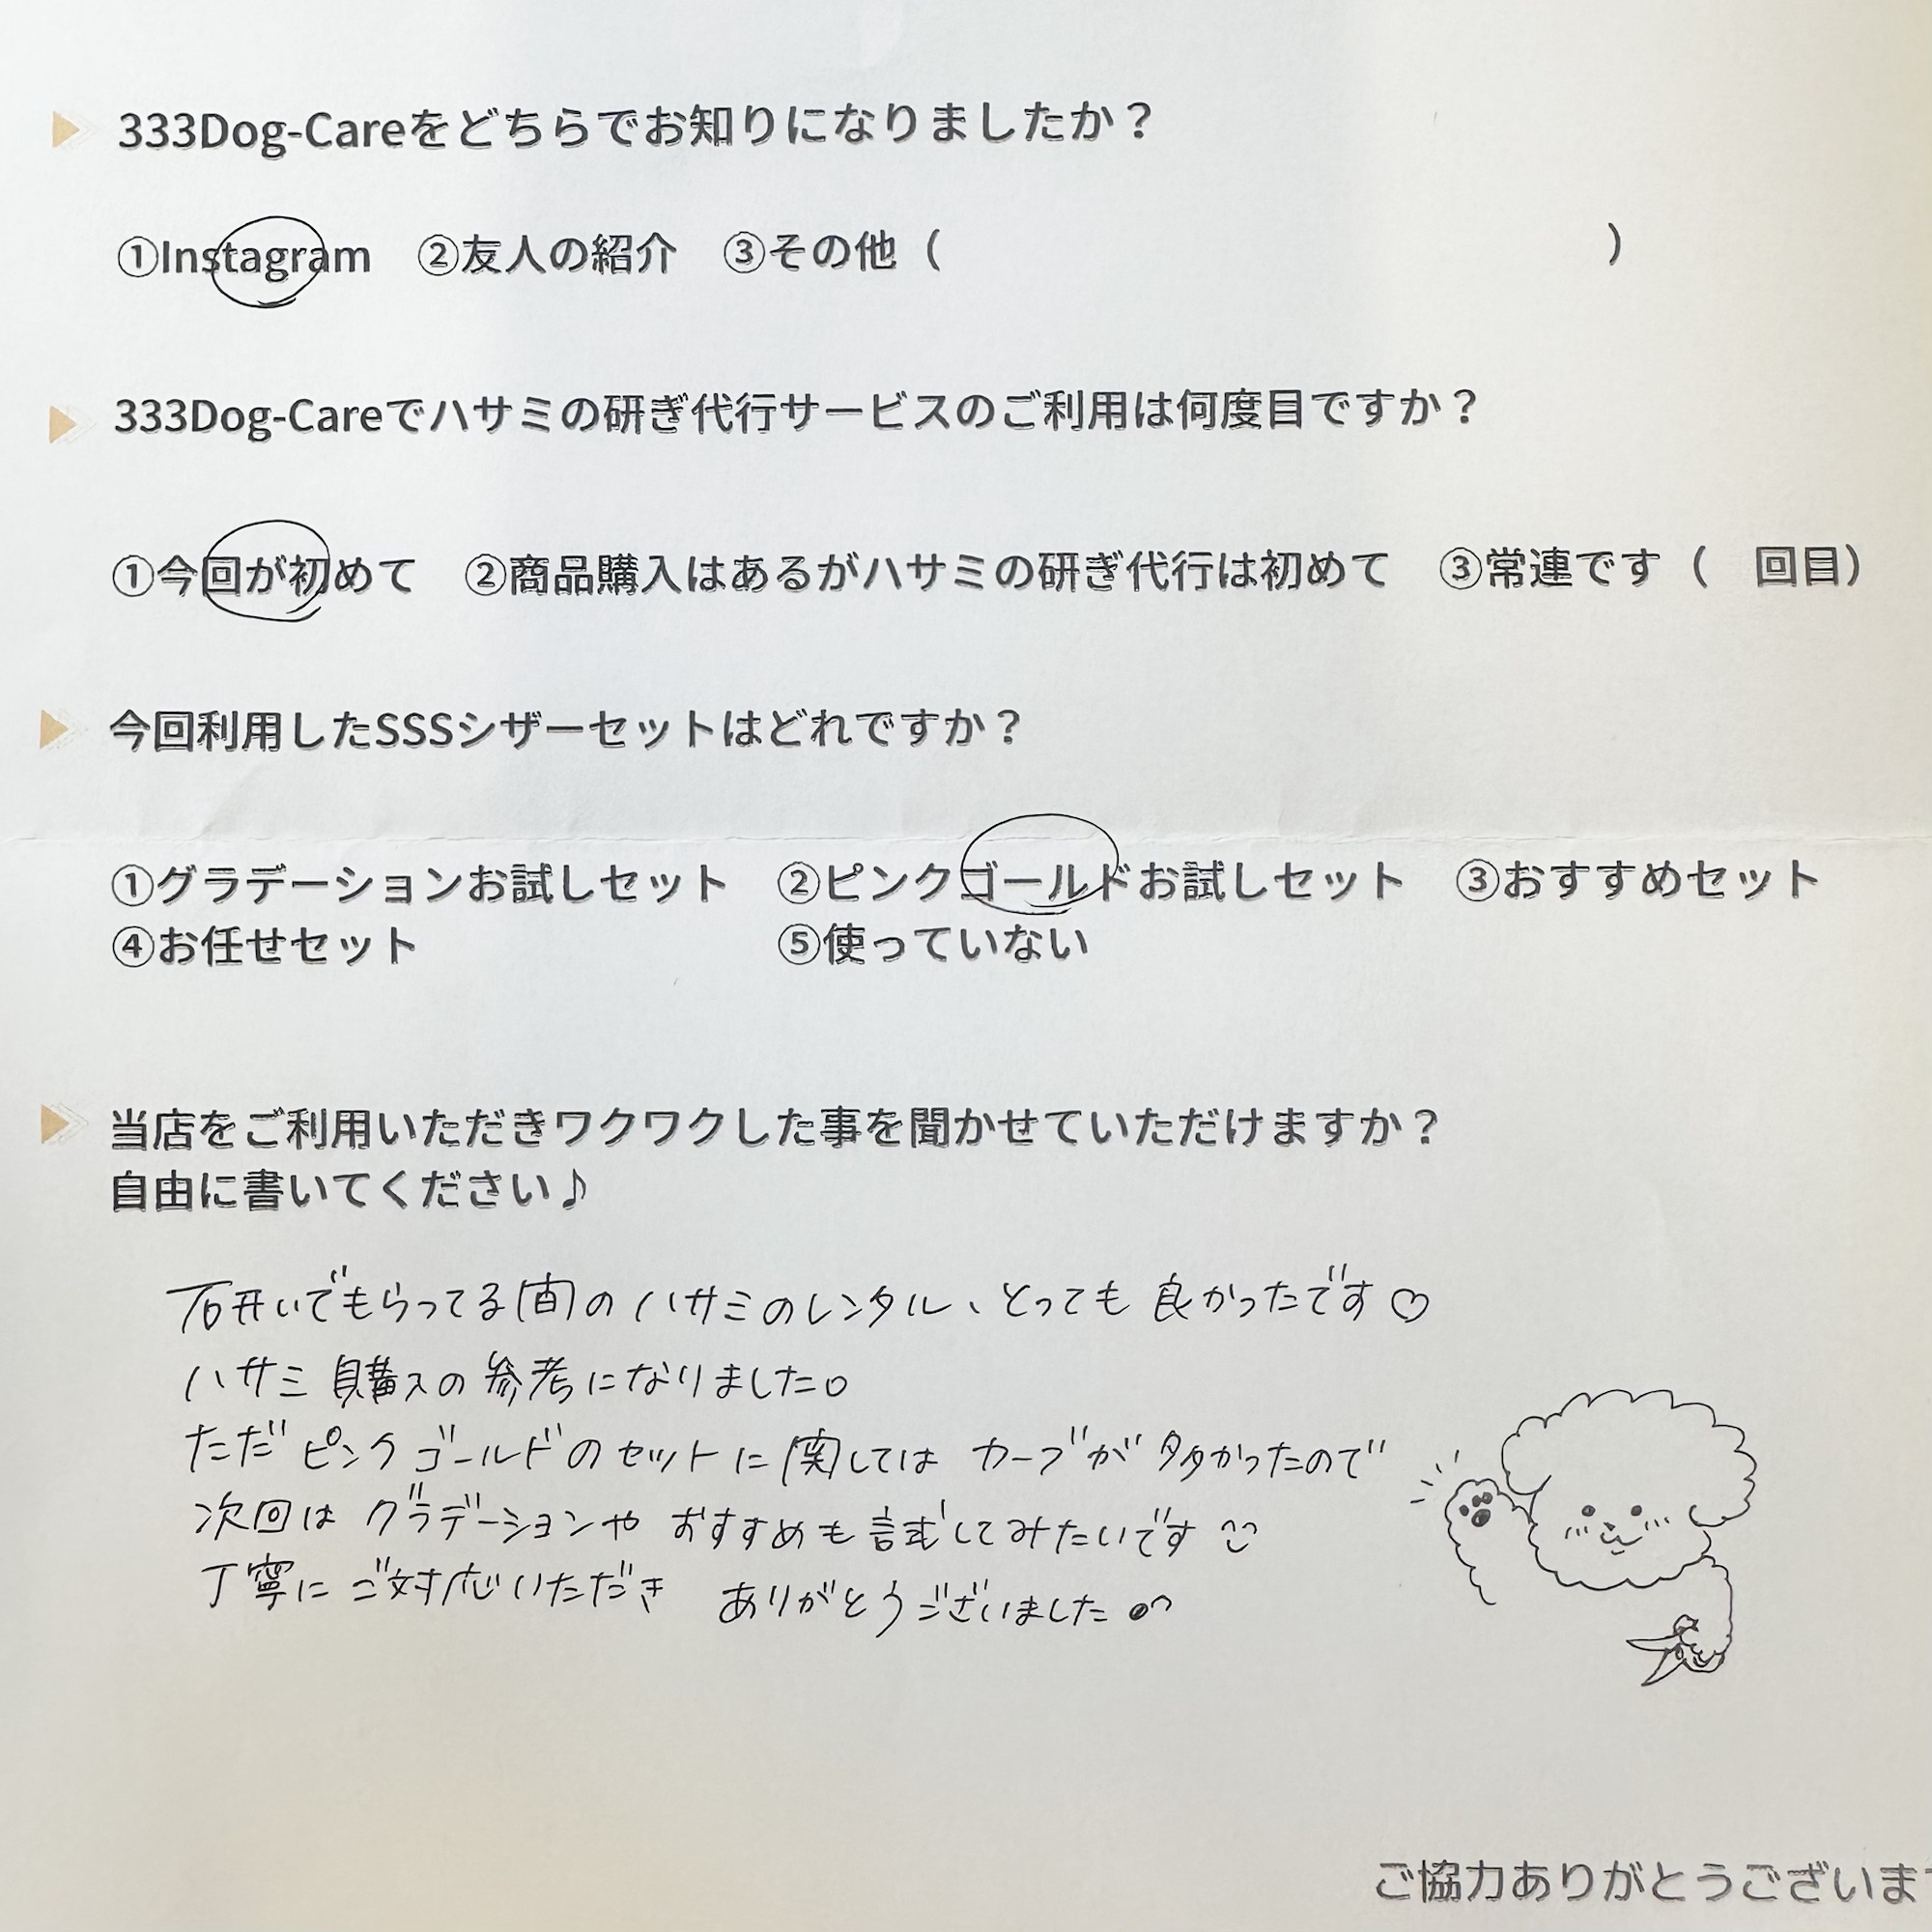 333Dog-Careをどちらでお知りになりましたか？
①Instagram　②友人の紹介　③その他（　　　　　　　　）
333Dog-Careでハサミの研ぎ代行サービスのご利用は何度目ですか？
①今回が初めて　②商品購入はあるがハサミの研ぎ代行は初めて　③常連です（　回目）
今回利用したSSSシザーセットはどれですか？
①グラデーションお試しセット　②ピンクゴールドお試しセット　③おすすめセット
④お任せセット　⑤使っていない
当店をご利用いただきワクワクした事を聞かせていただけますか？
自由に書いてください♪
研いでもらってる間のハサミのレンタル、とっても良かったです♡
ハサミ購入の参考になりました。
ただピンクゴールドのセットに関してはカーブが多かったので
次回はグラデーションやおすすめも試してみたいです
丁寧にご対応いただきありがとうございました
ご協力ありがとうございます